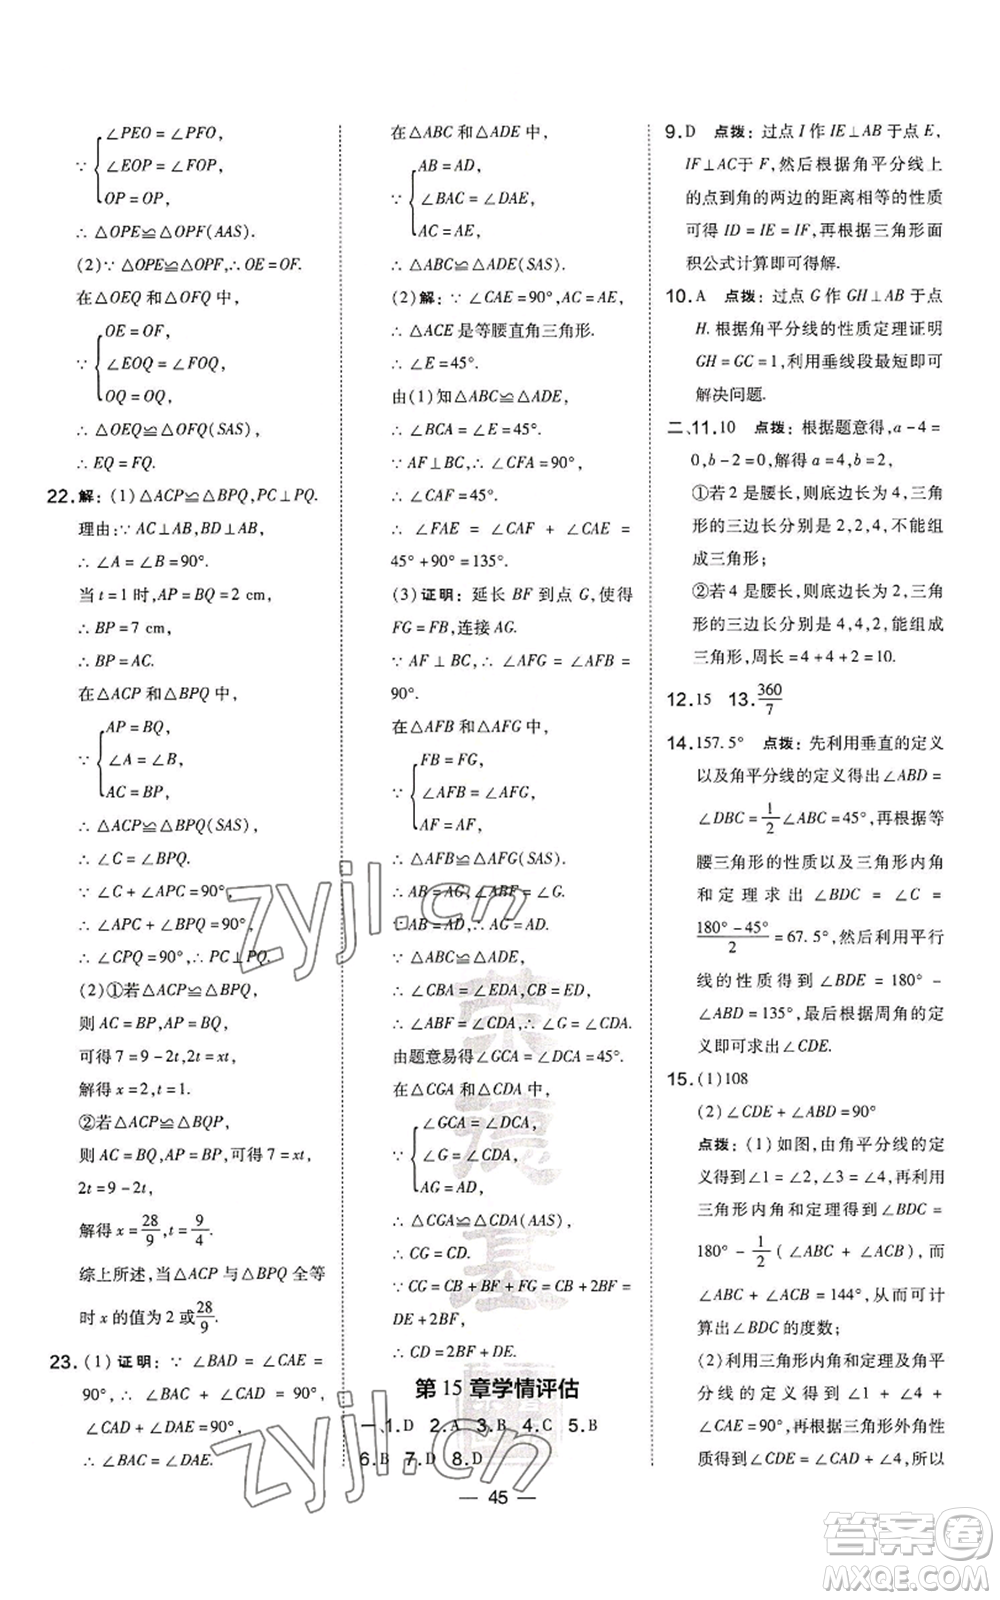 ∵
∠PEO = ∠PFO,
∠EOP = ∠FOP,
OP = OP,
∴ △OPE≌△OPF(AAS).
(2)∵ △OPE≌△OPF,∴ OE = OF.
在△OEQ 和△OFQ 中,
∵
OE = OF,
∠EOQ = ∠FOQ,
OQ = OQ,
∴ △OEQ≌△OFQ(SAS),
∴ EQ = FQ.
22.解:(1)△ACP≌△BPQ,PC⊥PQ.
理由:∵ AC⊥AB,BD⊥AB,
∴ ∠A = ∠B = 90°.
当 t = 1 时,AP = BQ = 2 cm,
∴ BP = 7 cm,
∴ BP = AC.
在△ACP 和△BPQ 中,
∵
AP = BQ,
∠A = ∠B,
AC = BP,
∴ △ACP≌△BPQ(SAS),
∴ ∠C = ∠BPQ.
∵ ∠C + ∠APC = 90°,
∴ ∠APC + ∠BPQ = 90°,
∴ ∠CPQ = 90°,∴ PC⊥PQ.
(2)①若△ACP≌△BPQ,
则 AC = BP,AP = BQ,
可得 7 = 9 - 2t,2t = xt,
解得 x = 2,t = 1.
②若△ACP≌△BQP,
则 AC = BQ,AP = BP,可得 7 = xt,
2t = 9 - 2t,
解得 x = 28/9,t = 9/4.
综上所述,当△ACP 与△BPQ 全等
时 x 的值为 2 或28/9.
23.(1)证明:∵ ∠BAD = ∠CAE =
90°,∴ ∠BAC + ∠CAD = 90°,
∠CAD + ∠DAE = 90°,
∴ ∠BAC = ∠DAE.
在△ABC 和△ADE 中,
∵
AB = AD,
∠BAC = ∠DAE,
AC = AE,
∴ △ABC≌△ADE(SAS).
(2)解:∵ ∠CAE = 90°,AC = AE,
∴ △ACE 是等腰直角三角形.
∴ ∠E = 45°.
由(1)知△ABC≌△ADE,
∴ ∠BCA = ∠E = 45°.
∵ AF⊥BC,∴ ∠CFA = 90°.
∴ ∠CAF = 45°.
∴ ∠FAE = ∠CAF + ∠CAE =
45° + 90° = 135°.
(3)证明:延长 BF 到点 G,使得
FG = FB,连接 AG.
∵ AF⊥BC,∴ ∠AFG = ∠AFB =
90°.
在△AFB 和△AFG 中,
∵
FB = FG,
∠AFB = ∠AFG,
AF = AF,
∴ △AFB≌△AFG(SAS).
∴ AB = AG,∠ABF = ∠G.
∵ AB = AD,∴ AG = AD.
∵ △ABC≌△ADE,
∴ ∠CBA = ∠EDA,CB = ED,
∴ ∠ABF = ∠CDA,∴ ∠G = ∠CDA.
由题意易得∠GCA = ∠DCA = 45°.
在△CGA 和△CDA 中,
∵
∠GCA = ∠DCA,
∠G = ∠CDA,
AG = AD,
∴ △CGA≌△CDA(AAS).
∴ CG = CD.
∵ CG = CB + BF + FG = CB + 2BF =
DE + 2BF,
∴ CD = 2BF + DE.
第 15 章学情评估
一、1.D 2.A 3.B 4.C 5.B
6.B 7.D 8.D
9.D 点拨:过点 I 作 IE⊥AB 于点 E,
IF⊥AC于 F,然后根据角平分线上
的点到角的两边的距离相等的性质
可得 ID = IE = IF,再根据三角形面
积公式计算即可得解.
10.A 点拨:过点 G 作 GH⊥AB 于点
H.根据角平分线的性质定理证明
GH = GC = 1,利用垂线段最短即可
解决问题.
二、11.10 点拨:根据题意得,a - 4 =
0,b - 2 = 0,解得 a = 4,b = 2,
①若 2 是腰长,则底边长为 4,三角
形的三边长分别是 2,2,4,不能组
成三角形;
②若 4 是腰长,则底边长为 2,三角
形的三边长分别是 4,4,2,能组成
三角形,周长 = 4 + 4 + 2 = 10.
12.15 13.360/7
14.157.5° 点拨:先利用垂直的定义
以及角平分线的定义得出∠ABD =
∠DBC = 1/2∠ABC = 45°,再根据等
腰三角形的性质以及三角形内角
和定理求出 ∠BDC = ∠C =
(180° - 45°)/2 = 67.5°,然后利用平行
线的性质得到∠BDE = 180° -
∠ABD = 135°,最后根据周角的定
义即可求出∠CDE.
15.(1)108
(2)∠CDE + ∠ABD = 90°
点拨:(1)如图,由角平分线的定
义得到∠1 = ∠2,∠3 = ∠4,再利用
三角形内角和定理得到∠BDC =
180° - 1/2(∠ABC + ∠ACB),而
∠ABC + ∠ACB = 144°,从而可计
算出∠BDC 的度数;
(2)利用三角形内角和定理和角
平分线的定义得到∠BAE +
∠CAE = 90°,再根据三角形外角性
质得到∠CDE = ∠CAD + ∠ACD,
∠BAE = ∠ABD + ∠AED,所以
45
zyjl.cn
zyjl.cn
荣德基
答案圈
MXQE.COM